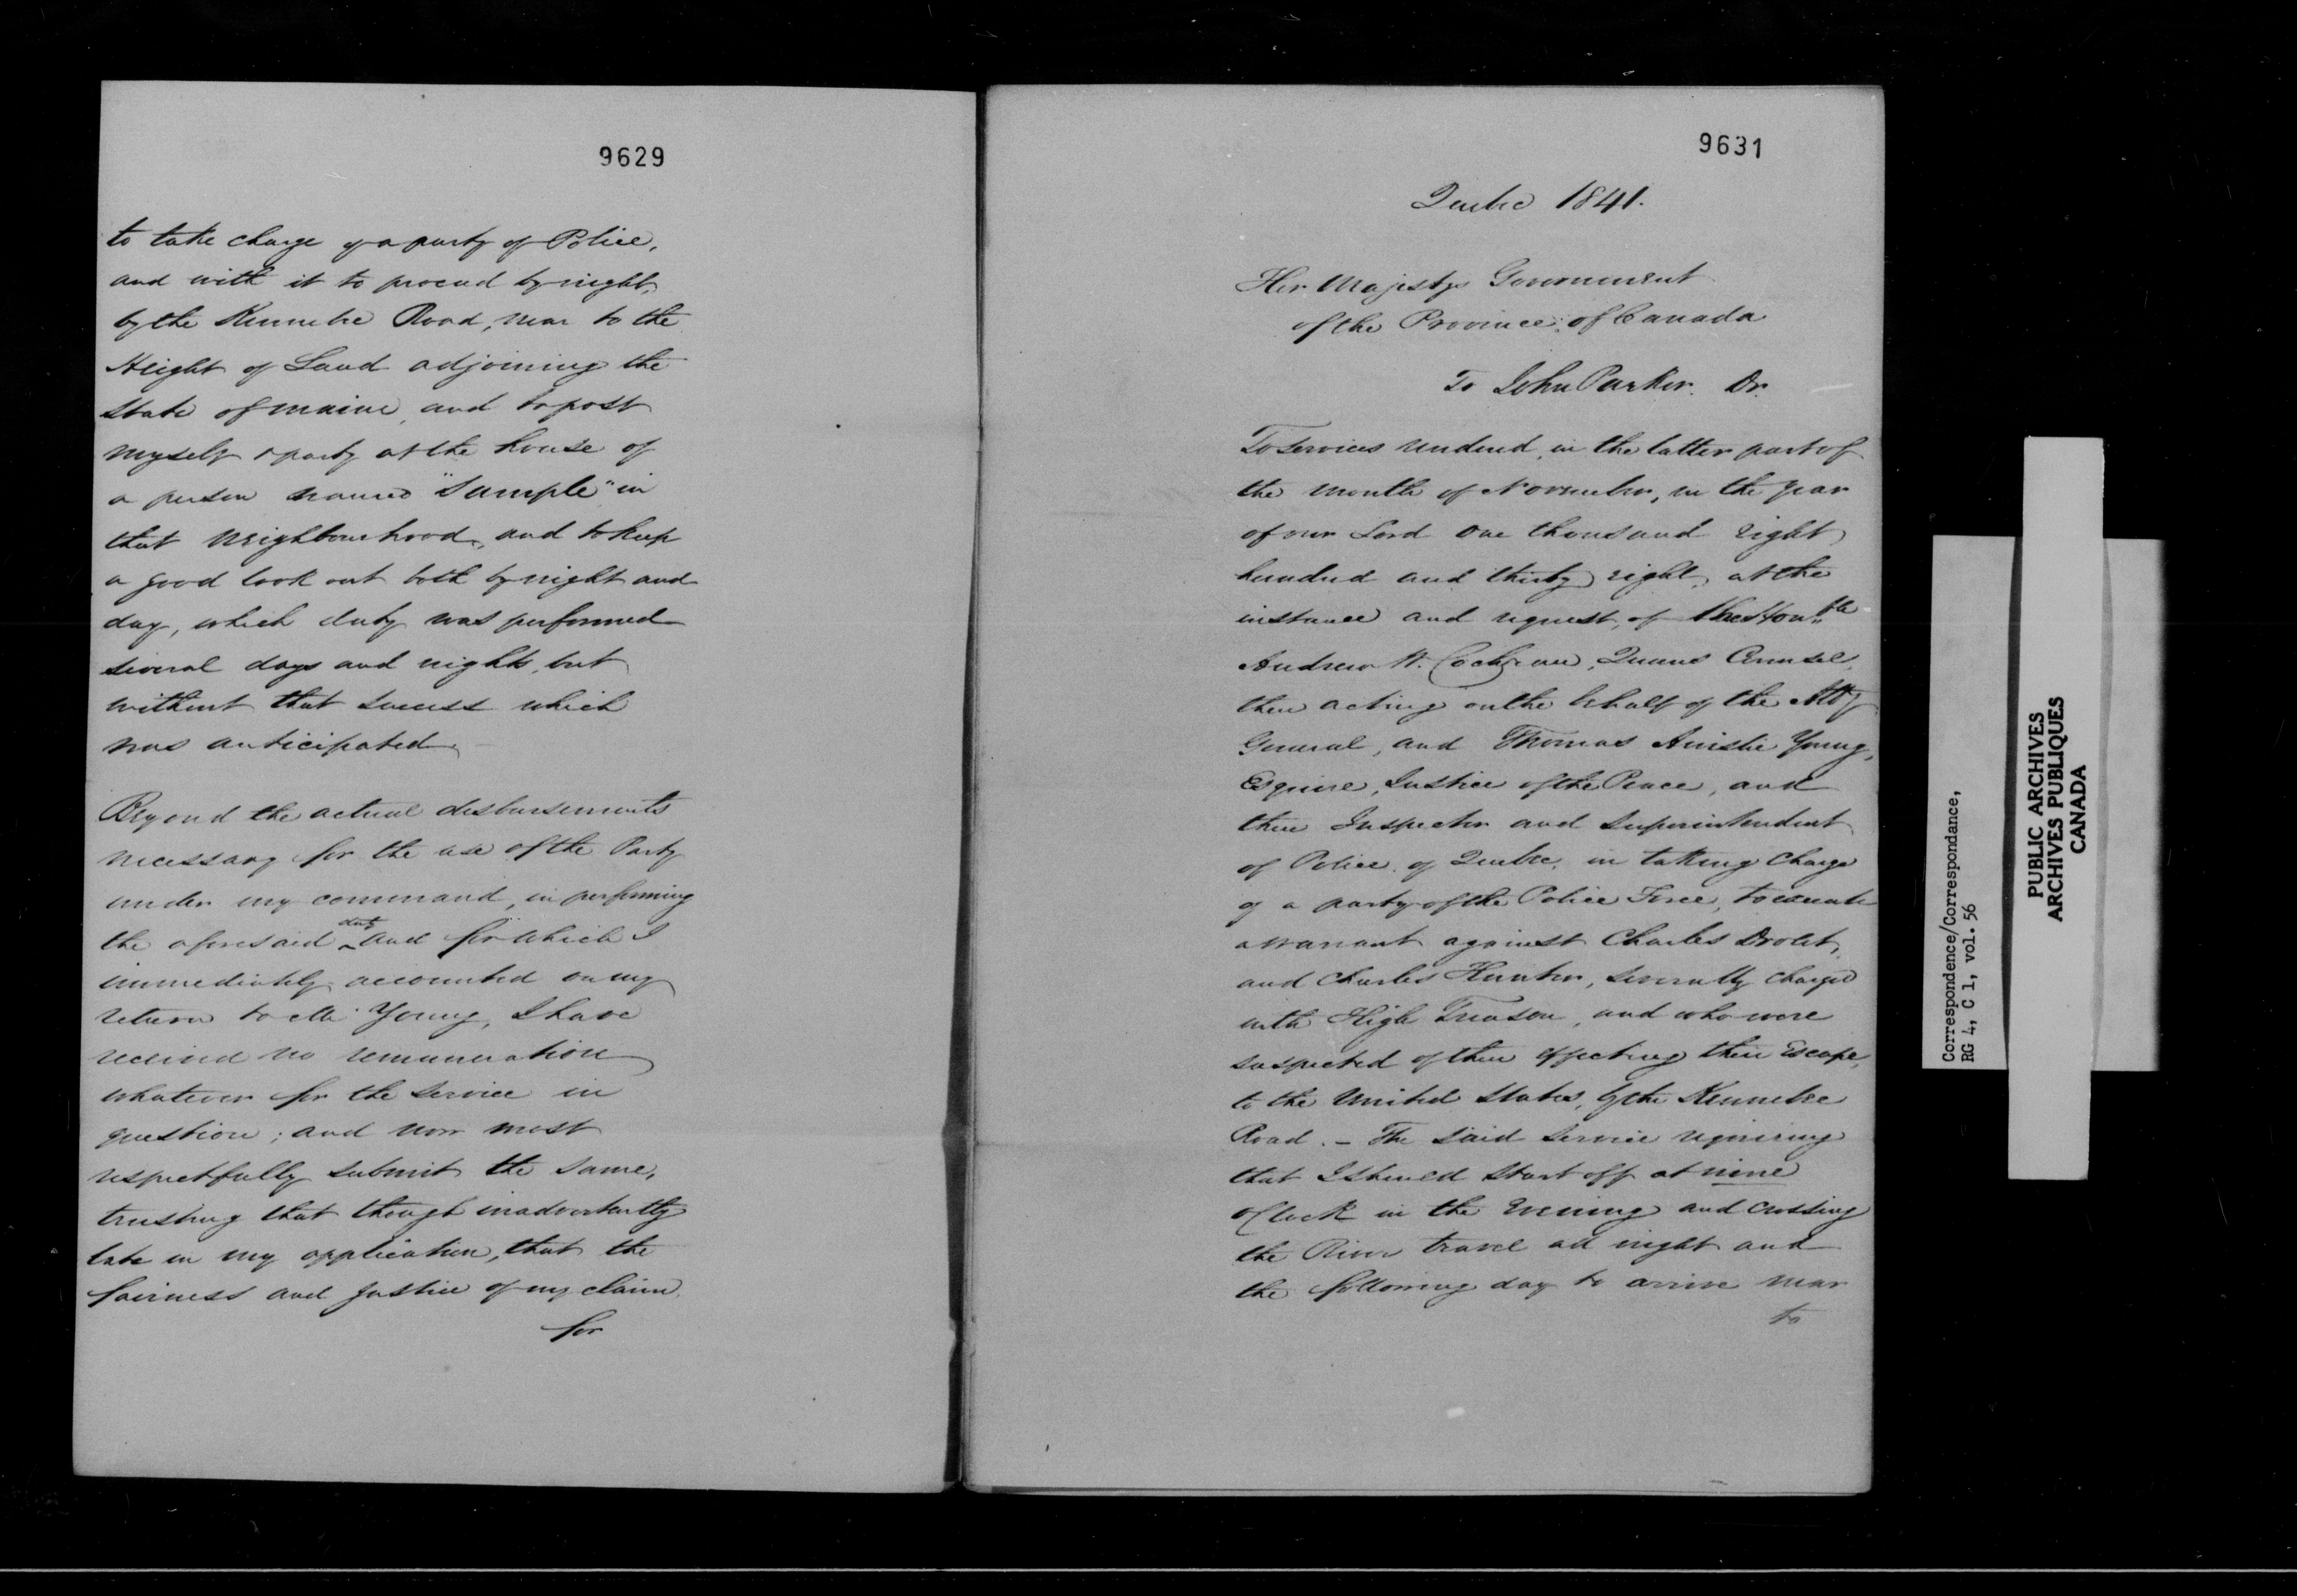 9629
to take charge of a party of Police,
and with it to proceed by night,
by the Kennebec Road, near to the
Height of Land adjoining the
State of Maine, and to post
myself & party at the house of
a person named "Sample" in
that neighbourhood, and to keep
a good look out both by night and
day, which duty was performed
several days and nights, but
without that success which
was anticipated.
Beyond the actual disbursements
necessary for the use of the Party
under my command, in performing
the aforesaid duty and for which I
immediately accounted on my
return to Mr Young, I have
received no remuneration
whatever for the service in
question; and now most
respectfully submit the same,
trusting that though inadvertently
late in my application, that the
fairness and justice of my claim
for
9631
Quebec 1841.
Her Majestys Government
of the Province of Canada
To John Parker. Dr.
To Services rendered, in the latter part of
the month of November, in the year
of our Lord one thousand eight
hundred and thirty eight, at the
instance and request, of the Honble
Andrew W. Cochrane, Queens Counsel,
then acting on the behalf of the Atty
General, and Thomas Ainslie Young,
Esquire, Justice of the Peace, and
then Inspector and Superintendent
of Police, of Quebec, in taking charge
of a party of the Police Force, to execute
a warrant against Charles Drolet,
and Charles Hunter, severally charged
with High Treason, and who were
suspected of then effecting their Escape,
to the United States, by the Kennebec
Road. – The said Service requiring
that I should start off at nine
oClock in the Evening and crossing
the River travel all night and
the following day to arrive near
to
Correspondence/Correspondance,
RG 4, C 1, vol. 56
PUBLIC ARCHIVES
ARCHIVES PUBLIQUES
CANADA